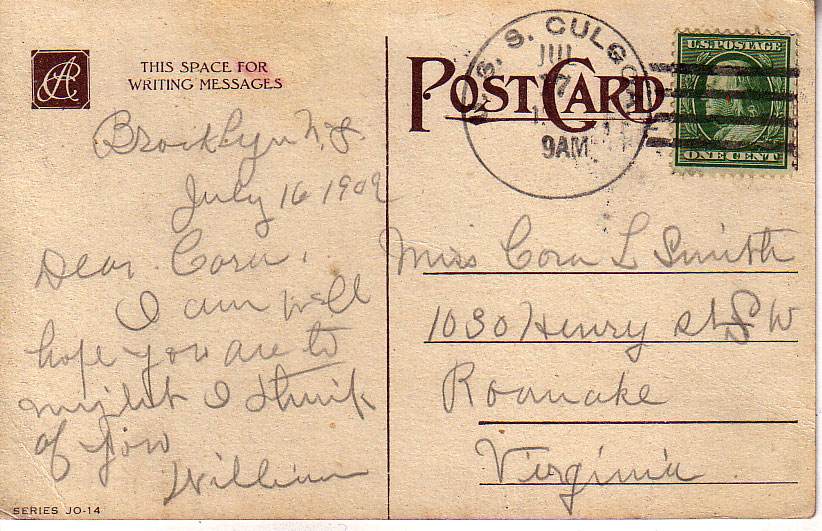 THIS SPACE FOR
WRITING MESSAGES
POST CARD
U.S. S. CULGOA
JUL
17
9AM
U.S. POSTAGE
ONE CENT
Brooklyn N.Y.
July 16 1909
Dear Cora,
I am well
hope you are to
might I think
of you
William
Miss Cora L Smith
1030 Henry St S W
Roanake
Virginia
SERIES JO-14